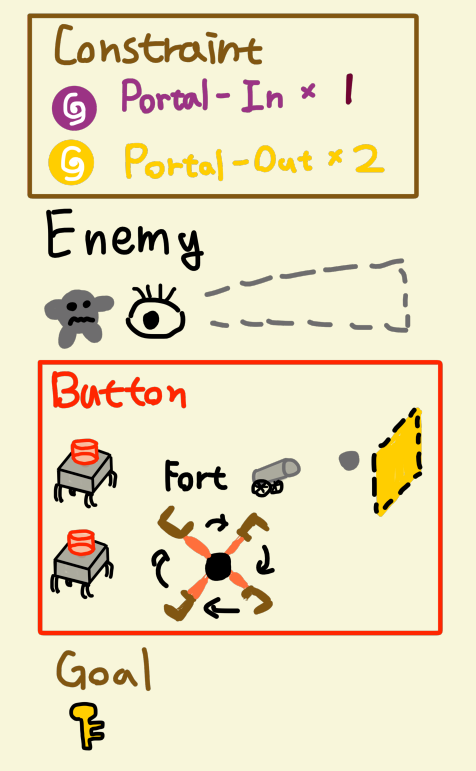 Constraint
Portal-In × 1
Portal-Out × 2
Enemy
Button
Fort
Goal